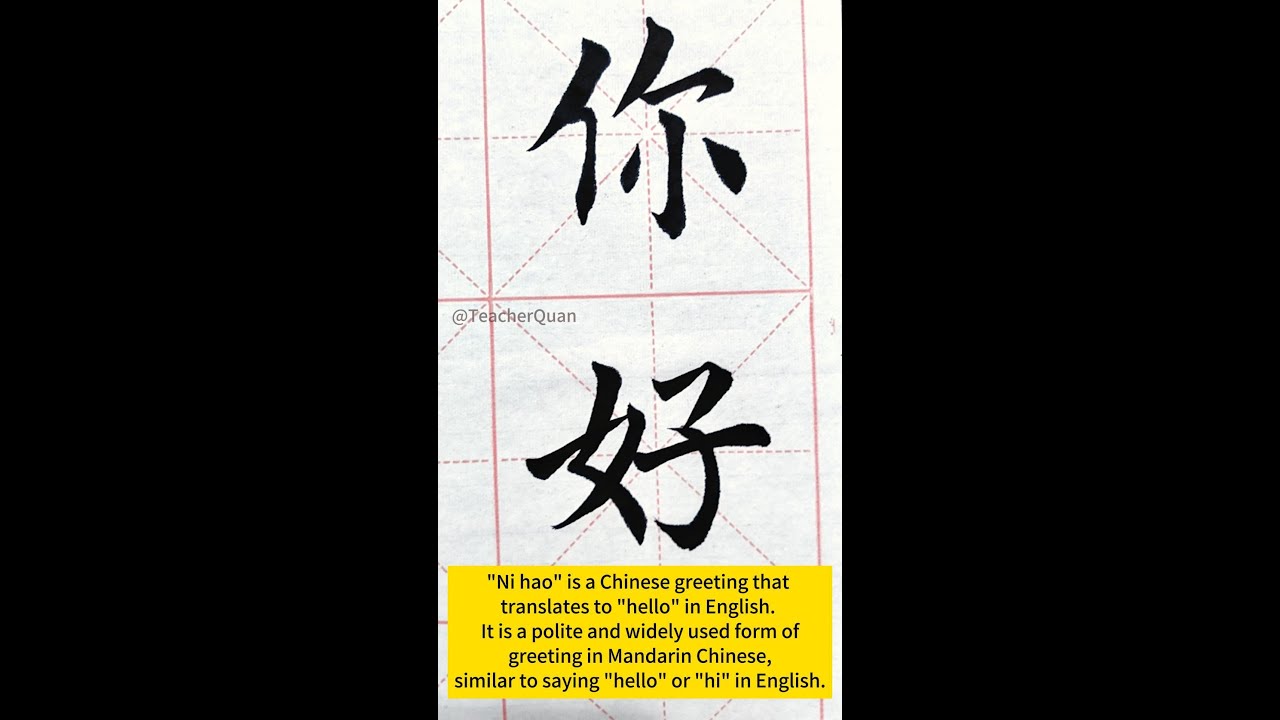 你
好
@TeacherQuan
"Ni hao" is a Chinese greeting that
translates to "hello" in English.
It is a polite and widely used form of
greeting in Mandarin Chinese,
similar to saying "hello" or "hi" in English.